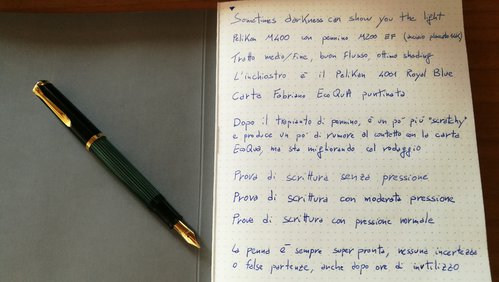 Sometimes darkness can show you the light
Pelikan M400 con pennino M200 EF (acciaio placcato
Tratto medio/fine, buon flusso, ottimo shading
L'inchiostro è il Pelikan 4001 Royal Blue
Carta Fabriano EcoQuA puntinata
Dopo il trapianto di pennino, è un po' più "scratchy"
e produce un po' di rumore al contatto con la carta
EcoQua, ma sta migliorando col rodaggio
Prova di scrittura senza pressione
Prova di scrittura con moderata pressione
Prova di scrittura con pressione normale
La penna è sempre super pronta, nessuna incertezza
o false partenze, anche dopo ore di inutilizzo